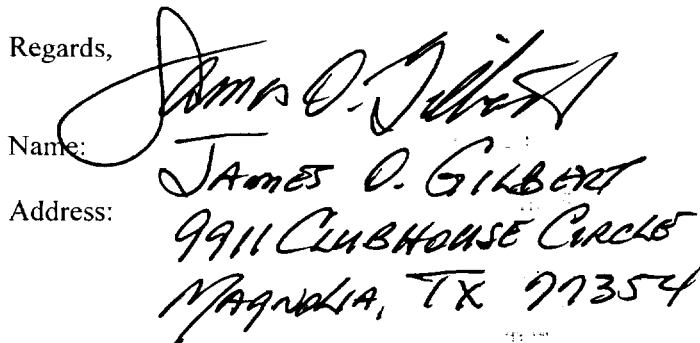 Regards,
James O. Gilbert
Name:
JAMES O. GILBERT
Address:
9911 CLUBHOUSE CIRCLE
MAGNOLIA, TX 77354